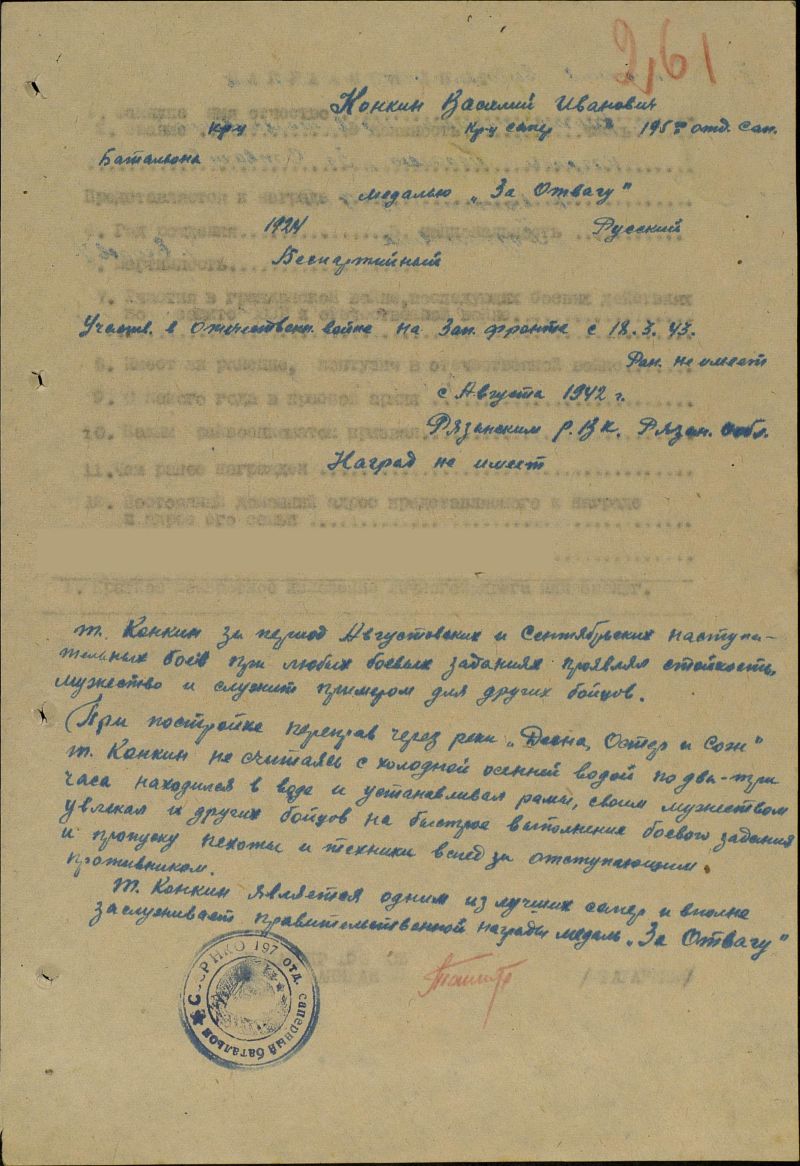 261
1. Фамилия имя отчество Конкин Василий Иванович
2. Звание кр-ц кр-ц сапер 195 отд. сап.
Батальона
Представляется к награде медалью „За Отвагу"
4. Год рождения 1924 национальность Русский
партийность Беспартийный
7. Участия в гражданской войне, последующих боевых действиях
Участв. в Отечествен. войне на Зап. фронте с 18.3.43.
8. Имеет ли ранение, контузии в отечественной войне Ран. не имеет
9. С какого года в красной армии с Августа 1942 г.
10. Каким райвоенкоматом призван Рязанским р.В.К. Рязан. обл.
11. Чем ранее награжден Наград не имеет
12. Постоянный домашний адрес представляемого к награде
и адрес его семьи
1. Краткое конкретное изложение личного
т. Конкин за период Августовских и Сентябрьских наступа-
тельных боев при любых боевых заданиях проявлял стойкость,
мужество и служит примером для других бойцов.
При постройке переправ через реки „Десна, Остер и Сож"
т. Конкин не считаясь с холодной осенней водой по два-три
часа находился в воде и устанавливал рамы, своим мужеством
увлекал их других бойцов на быстрое выполнение боевого задания
и пропуску пехоты и техники вслед за отступающим
противником.
т. Конкин является одним из лучших сапер и вполне
заслуживает правительственной награды медаль „За Отвагу"
СССР НКО 197 отд. саперный батальон